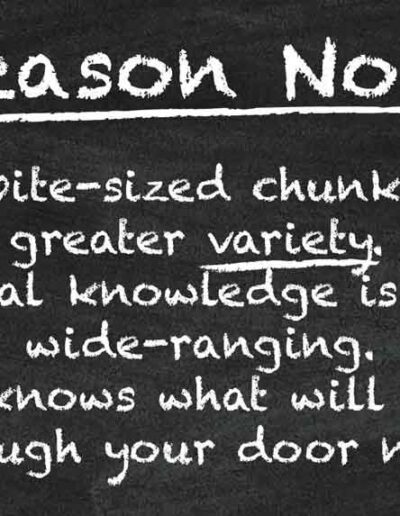 eason No
bite-sized chunk
greater variety.
al knowledge is
wide-ranging.
knows what will
ough your door n